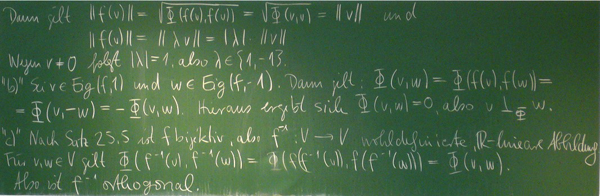 Dann gilt ||f(v)|| = √Φ(f(v),f(v)) = √Φ(v,v) = ||v|| und
||f(v)|| = ||λv|| = |λ|·||v||
Wegen v ≠ 0 folgt |λ| = 1, also λ ∈ {1,-1}.
"b)" Sei v ∈ Eig(f,1) und w ∈ Eig(f,-1). Dann gilt: Φ(v,w) = Φ(f(v),f(w)) =
= Φ(v,-w) = -Φ(v,w). Hieraus ergibt sich Φ(v,w) = 0, also v ⊥_Φ w.
"c)" Nach Satz 25.5 ist f bijektiv, also f⁻¹: V → V wohldefinierte, ℝ-lineare Abbildung
Für v,w ∈ V gilt Φ(f⁻¹(v), f⁻¹(w)) = Φ(f(f⁻¹(v)), f(f⁻¹(w))) = Φ(v,w).
Also ist f⁻¹ orthogonal.